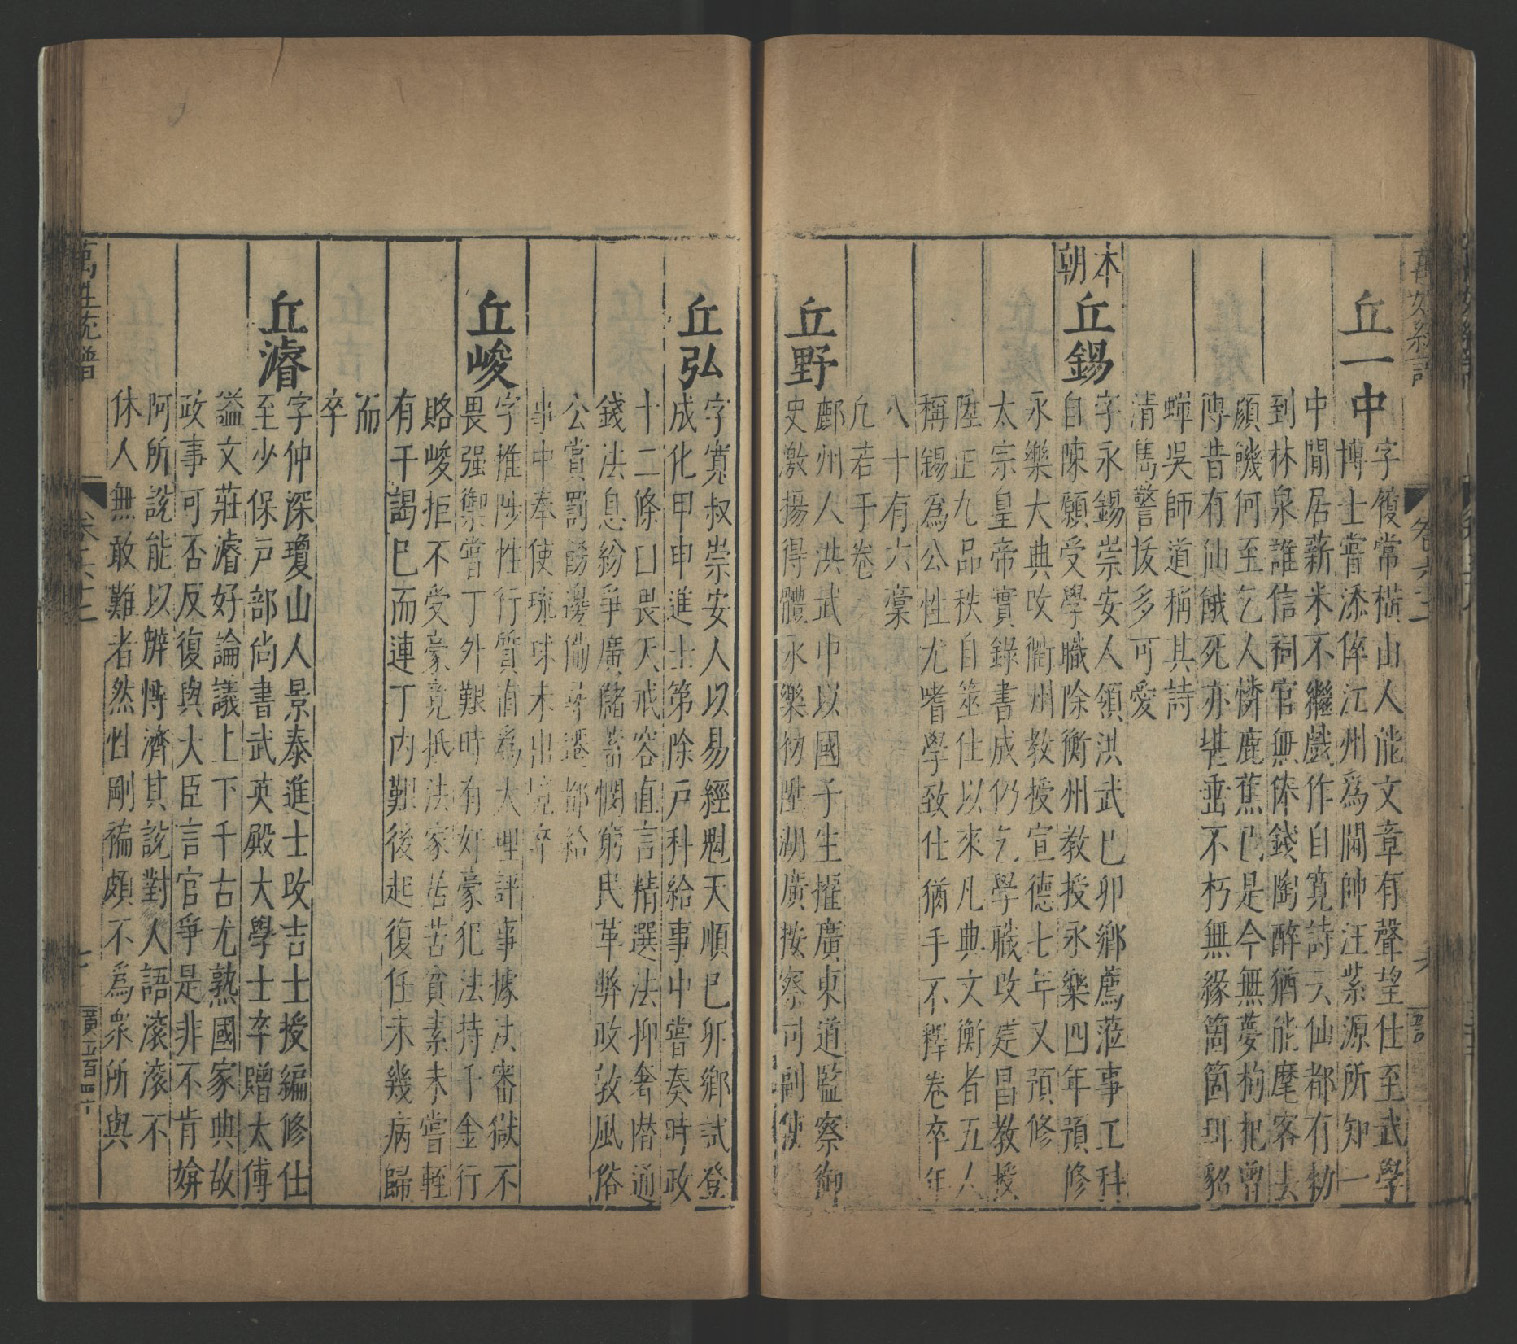 丘一中
字履常橫山人能文章有聲望仕至武學
博士嘗添倅江州為閫帥汪紫源所知一
中閒居薪米不繼戲作自寬詩云仙都有勑
到林泉誰信祠官無俸錢陶醉猶能麾客去
顏饑何至乞人憐鹿蕉已是今無夢枸杞曾
傳昔有仙餓死亦堪垂不朽無緣箇箇珥貂
蟬吳師道稱其詩
清雋警拔多可愛
本朝
丘錫
字永錫崇安人領洪武己卯鄉薦蒞事工科
自陳願受學職除衡州教授永樂四年預修
永樂大典改衢州教授宣德七年又預修
太宗皇帝實錄書成仍乞學職改建昌教授
陞正九品秩自筮仕以來凡典文衡者五人
稱錫為公性尤嗜學致仕猶手不釋卷卒年
八十有六藁
凡若干卷
丘野
鄜州人洪武中以國子生擢廣東道監察御
史激揚得體永樂初陞湖廣按察司副使
丘弘
字寬叔崇安人以易經魁天順己卯鄉試登
成化甲申進士第除戶科給事中嘗奏時政
十二條曰畏天戒容直言精選法抑奢僭通
錢法息紛爭廣儲蓄憫窮民革弊政敦風俗
公賞罰飭邊備尋遷都給
事中奉使琉球未出境卒
丘峻
字惟陟性行質直為大理評事據法審獄不
畏强禦嘗丁外艱時有奸豪犯法持千金行
賂峻拒不受豪竟抵法家居苦貧素未嘗輕
有干謁已而連丁內艱後起復任未幾病歸
而
卒
丘濬
字仲深瓊山人景泰進士改吉士授編修仕
至少保戶部尙書武英殿大學士卒贈太傅
謚文莊濬好論議上下千古尤熟國家典故
政事可否反復與大臣言官爭是非不肯媕
阿所說能以辨博濟其說對人語滾滾不
休人無敢難者然性剛褊頗不為衆所與
萬姓統譜
卷六十
七
廣五百四十